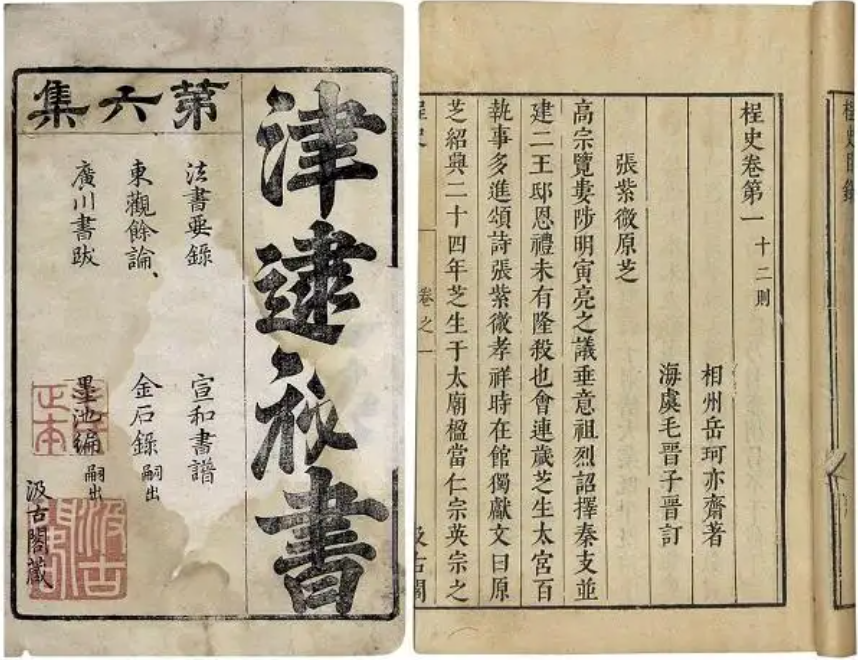 津逮祕書
苐六集
法書要錄
宣和書譜
東觀餘論、
金石錄 嗣出
廣川書跋
墨池編 嗣出
汲古閣藏
正本
汲古閣
桯史目錄
桯史卷第一 十二則
相州岳珂亦齋著
海虞毛晉子晉訂
張紫微原芝
高宗覽婁陟明寅亮之議垂意祖烈詔擇秦支並
建二王邸恩禮未有隆殺也會連歲芝生太宮百
執事多進頌詩張紫微孝祥時在館獨獻文曰原
芝紹興二十四年芝生于太廟楹當仁宗英宗之
桯史 卷之一 汲古閣